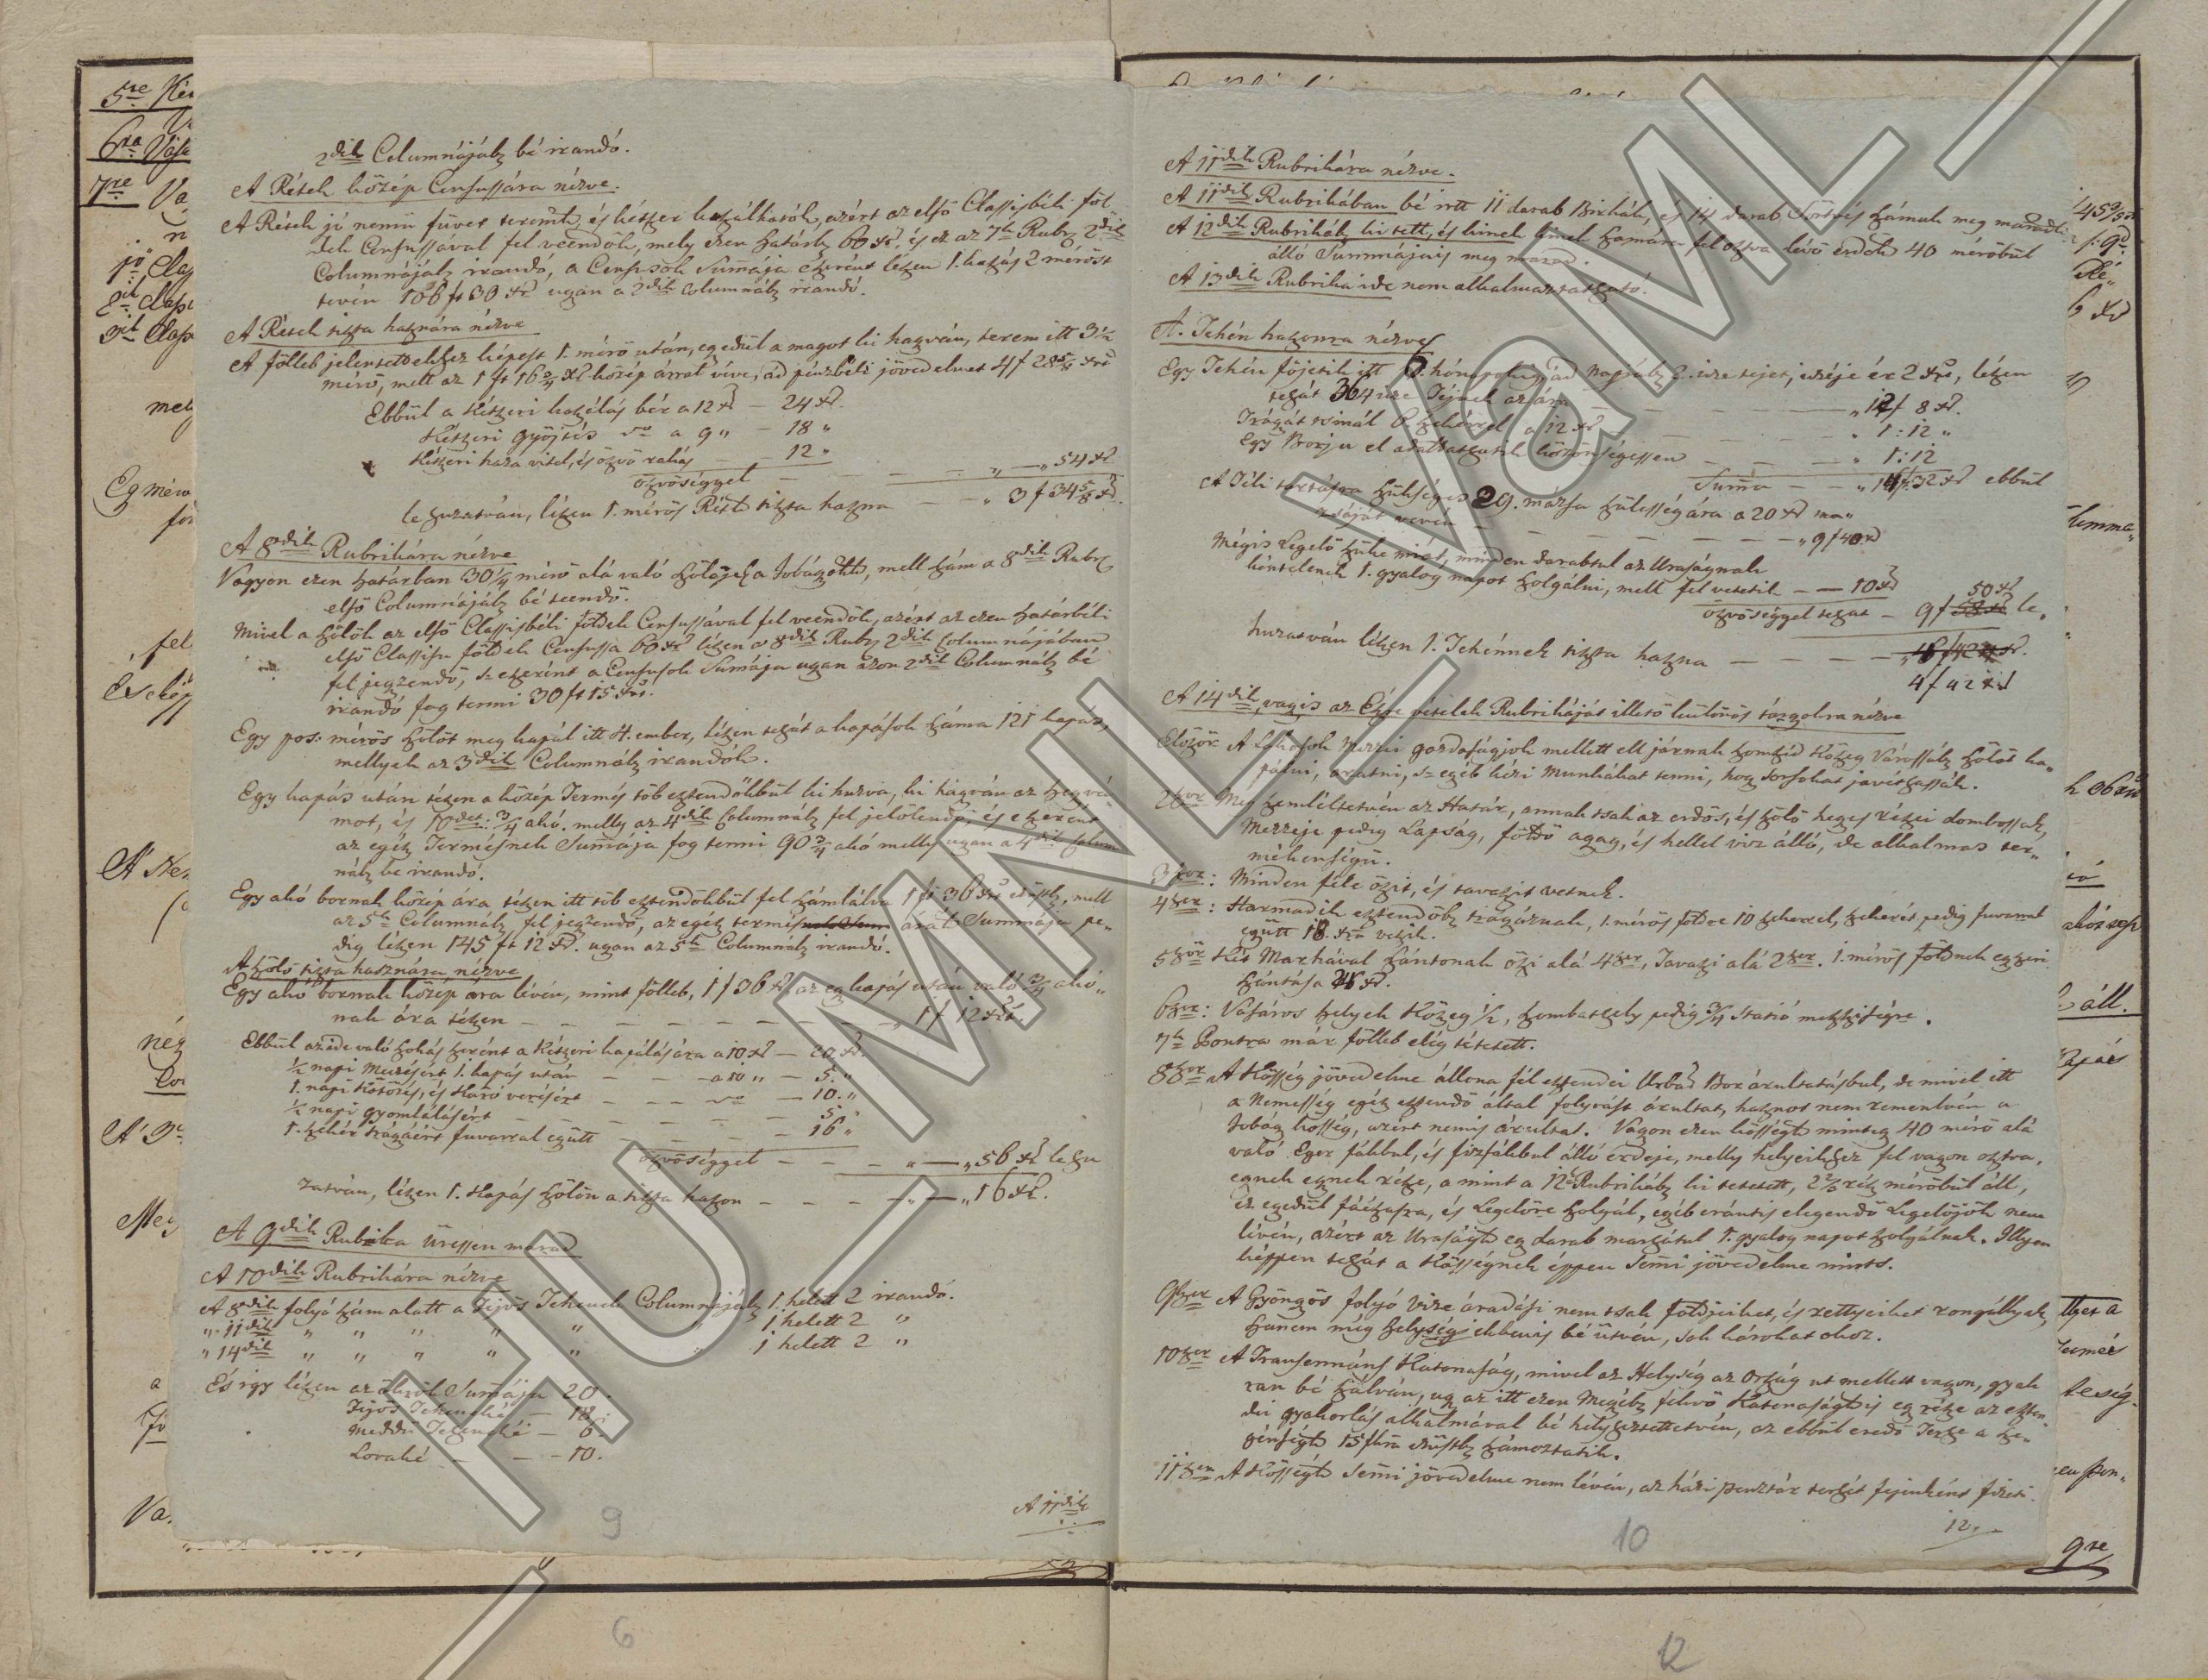 2dik Columnájáb bé irandó.
A Rétek közép Censussára nézve.
A Rétek jó nemü füvet teremth és kétszer kaszálhatók, azért az elsö Classisbéli föl
dek Censussával fel veendök, mely ezen határb 60 xr, és ez az 7k Rubr. 2dik
Columnájáb irandó, a Censusok Summája ezerént lészen 1. kaszás 2 méröst
tevén 106 ft 30 xr ugan a 2dik Columnáb irandó.
A Rétek tiszta hasznára nézve
A fölleb jelentettekhez képest 1. mérö után, egyedül a magot ki hagyván, terem itt 3 1/2
mérö, mell az 1 ft 16 3/4 xr közép árral véve, ád pénzbéli jövedelmet 4 f 28 5/8 xrt
Ebbül a kétszeri kaszálás bér a 12 xr — 24 xr.
Kétszeri gyüjtés do a 9 „ — 18 „
Kétszeri haza vitel, és öszvö rakás — 12 „
öszvöséggel — — „ — „ 54 xr
le huzatván, lészen 1. mérös Rétb tiszta haszna — — „ 3 f 34 5/8 xr.
A 8dik Rubrikára nézve
Vagyon ezen határban 30 1/4 mérö alá való szölöjök a Jobágyokk, mell szám a 8dik Rubr.
elsö Columnájáb bé teendö.
Mivel a szölök az elsö Classisbéli földek Censussával fel veendök, azért az ezen határbéli
elsö Classisu földek Censussa 60 xr lészen a 8dik Rubr. 2dik Columnájában
fel jegyzendö, s ezerént a Censusok Sumája ugan azon 2dik Columnáb bé
irandó fog tenni 30 ft 15 xrt.
Egy pos. mérös szölöt meg kapál itt 4. ember, lészen tehát a kapások száma 121 kapás,
mellyek az 3dik Columnáb irandók.
Egy kapás után tészen a közép Termés töb esztendökbül ki huzva, ki hagyván az hegyvá„
mot, és 10det: 3/4 akó. melly az 4dik Columnáb fel jelölendö, és ezerént
az egész Termésnek Sumája fog tenni 90 3/4 akó melly ugan a 4dik Colum
náb be irandó.
Egy akó bornak közép ára tészen itt töb esztendökbül fel számlálva 1 ft 36 xrt ezüstb, mell
az 5k Columnáb fel jegyzendö, az egész termés árát Summája pe„
dig lészen 145 ft 12 xr. ugan az 5k Columnáb irandó.
A szölö tiszta hasznára nézve
Egy akó bornak közép ára lévén, mint fölleb, 1 f 36 xr az eg kapás után való 3/4 akó„
nak ára tészen — — — — — — — — „ 1 f 12 xrt.
Ebbül az ide való szokás szerént a kétszeri kapálására a 10 xr — 20 xr.
1/2 napi Metzésért 1. kapás után — — — a 10 „ — 5. „
1. napi Kötözés, és Karó verésért — — — do — 10. „
1/2 napi gyomlálásért — — — — — 5 „
1. szekér trágyáért fuvarral együtt — — — — 16 „
öszvöséggel — — — „ — „ 56 xr le hu
zatván, lészen 1. Kapás szölön a tiszta haszon — — — — „ — „ 16 xr.
A 9dik Rubrika üressen marad
A 10dik Rubrikára nézve
A 8dik folyó szám alatt a Fejös Tehenek Columnájáb 1. helett 2 irandó.
„ 11dik „ „ „ „ „ „ 1 helett 2 „
„ 14dik „ „ „ „ „ „ 1 helett 2 „
És igy lészen az ökrök Sumája 20.
Fejös Teheneké — 18.
Meddü Teheneké — 6.
Lovaké — — 10.
A 11dik
9
A 11dik Rubrikára nézve.
A 11dik Rubrikában bé irtt 11 darab Birkák, és 14 darab Sörtvés számuk meg maradtt
A 12dik Rubrikáb ki tett, és kinek kinek számára fel osztva lévö erdök 40 méröbül
álló Summájais meg marad.
A 13dik Rubrika ide nem alkalmaztatható.
A. Tehén haszonra nézve
Egy Tehén fejetik itt 6. hónapokig, ád napjáb 2 itze tejet, itzéje ér 2 xrt, lészen
tehát 364 itze Tejnek az ára — — — — „ 12 f 8 xr.
Trágyát tsinál 6. szekérrel a 12 xr — — — — „ 1 : 12 „
Egy Borju el adattathatik közönségessen — — — — „ 1 : 12
Suma — — „ 14 f 32 xr ebbül
A Téli tartásra szükséges 29. mázsa szüksség ára a 20 xr má„
zsáját vevén — — — — — — „ 9 f 40 xr
Mégis Legelö szüke miát, minden darabtul az Uraságnak
köntelenek 1. gyalog napot szolgálni, mell fel vetetik — — 10 xr
50 xr
öszvöséggel tehát — 9 f le„
huzatván lészen 1. Tehénnek tiszta haszna — — — —
4 f 42 xr
A 14dik, vagis az Észre vételek Rubrikáját illetö különös tárgyokra nézve
Elöször A Lakosok Mezzei gazdaságjok mellett ell járnak szomszéd Köszeg Várossáb szölöt ka„
pálni, aratni, s egéb kézi Munkákat tenni, hog sorsokat javéthassák.
2szor Meg szemléltetvén az Határ, annak tsak az erdös, és szölö hegyes részei dombossak,
Mezzeje pedig Lapság, földö agag, és hellel viz álló, de alkalmas ter„
mékenségü.
3szor: Minden féle öszit, és tavaszit vetnek.
4szer: Harmadik esztendöb trágyáznak, 1. mérös földre 10 szekerrel, szekerét pedig fuvarral
együtt 18. xra veszik.
5ször Kis Marhával szántonak öszi alá 4szer, Tavaszi alá 2szer. 1. mérös földnek egyszeri
szántása 26 xr.
6szor: Vásáros helyek Köszeg 1/2, Szombathely pedig 3/4 Statió messziségre.
7k Pontra már fölleb elég tétetett.
8szor A Kösség jövedelme állona fél esztendei Urbá Bor árultatásbul, de mivel itt
a Nemesség egész esztendö által folyvást árultat, hasznot nem remenlvén a
Jobág kösség, azért nemis árultat. Vagon ezen kösségb minteg 40 mérö alá
való Eger fákbul, és fiszfákbul álló erdeje, melly helyeikhez fel vagon osztva,
egnek egnek része, a mint a 12k Rubrikáb ki tetetett, 2 2/3 rész méröbül áll,
ez egyedül fáizásra, és Legelöre szolgál, egéb erántis elegendö Legelöjök nem
lévén, azért az Uraságb eg darab marhátul 1. gyalog napot szolgálnak. Illyen
képpen tehát a Kösségnek éppen Semi jövedelme nints.
9szer A Gyöngös folyó Vize áradási nem tsak földjeiket, és rettyeiket rongállyák,
hanem még helységiekbenis bé ütvén, sok károkat okoz.
10szer A Transennáns Katonaság, mivel az Helység az Ország ut mellett vagon, gyak
ran bé szálván, ug az itt ezen Megyéb fekvö Katonaságbis eg része az eszten„
dei gyakorlás alkalmával bé helyheztettetvén, az ebbül eredö Terhe a sze„
génségb 15 ftra ezüstb számoztatik.
11szer A Kösségb Semi jövedelme nem lévén, az házi pensztár terhét fejenként fizeti.
12. „
10
6
12
5re
6ra
7re
mel
Eg mérö
fel
A' Ne
nég
A' 9
Va
145 9/32
6 xr
áll.
teség.
9re